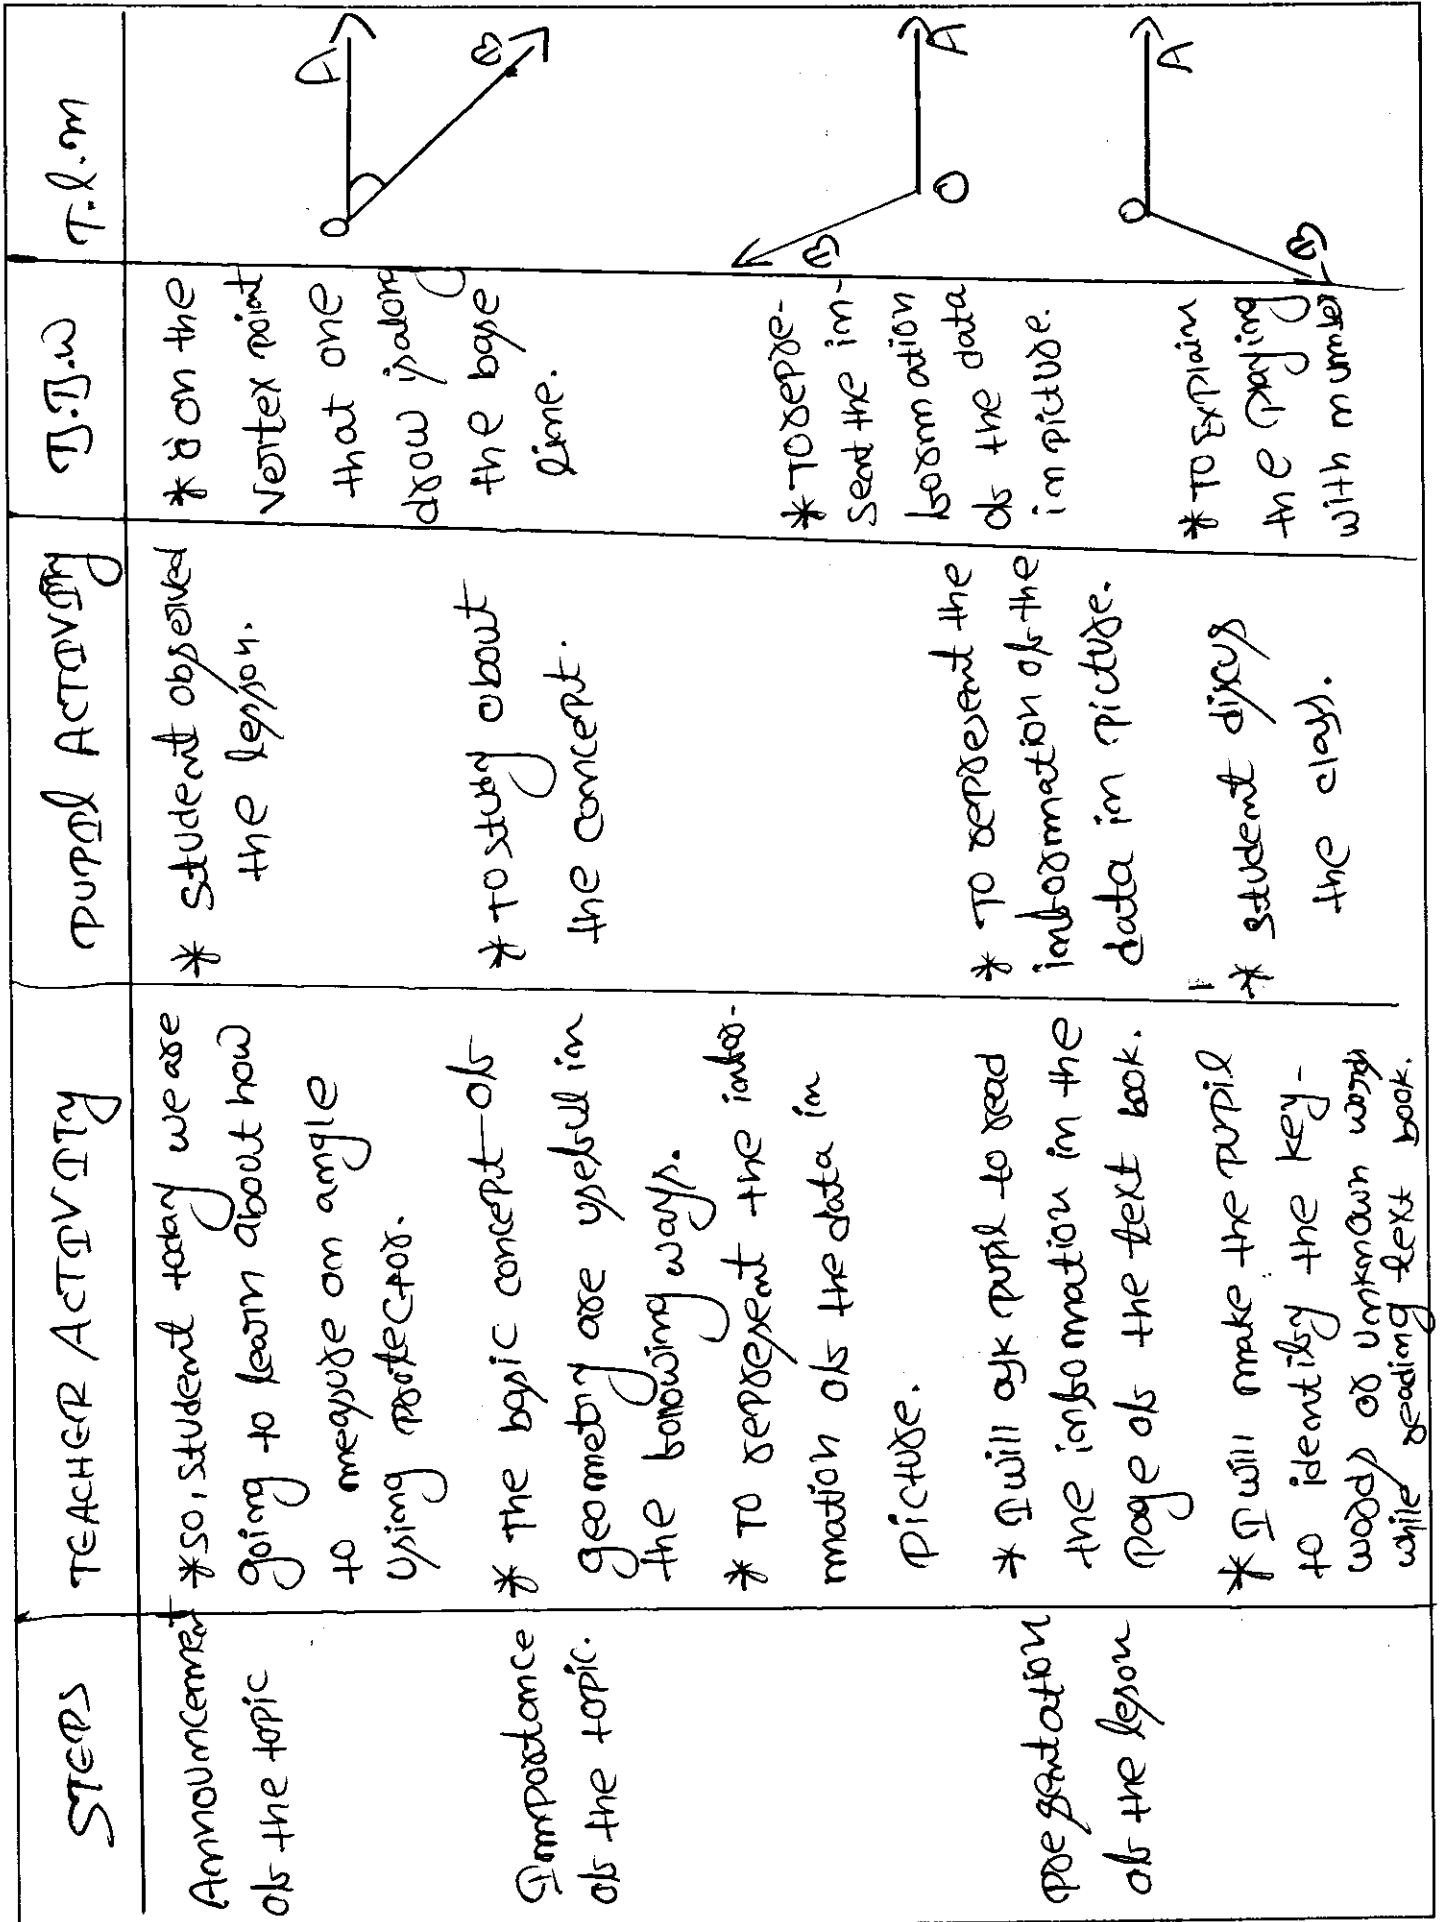 STEPS
TEACHER ACTIVITY
PUPIL ACTIVITY
B.B.W
T.L.M
Announcement
of the topic
*So, student today we are
going to learn about how
to measure an angle
using protector.
* Student observed
the lesson.
* on the
Vertex point
that one
drow is along
the base
line.
A
B
O
Importance
of the topic.
* The basic concept of
geometry are usefull in
the following ways.
* To represent the infor-
mation of the data in
picture.
* To study about
the concept.
* To repre-
sent the in-
formation
of the data
in picture.
A
B
O
presentation
of the lesson
* I will ask pupil to read
the information in the
page of the text book.
* I will make the pupil
to identify the key-
words or unknown words
while reading text book.
* To represent the
information of the
data in picture.
* Student discus
the class.
* To Explain
the playing
with number
A
O
B